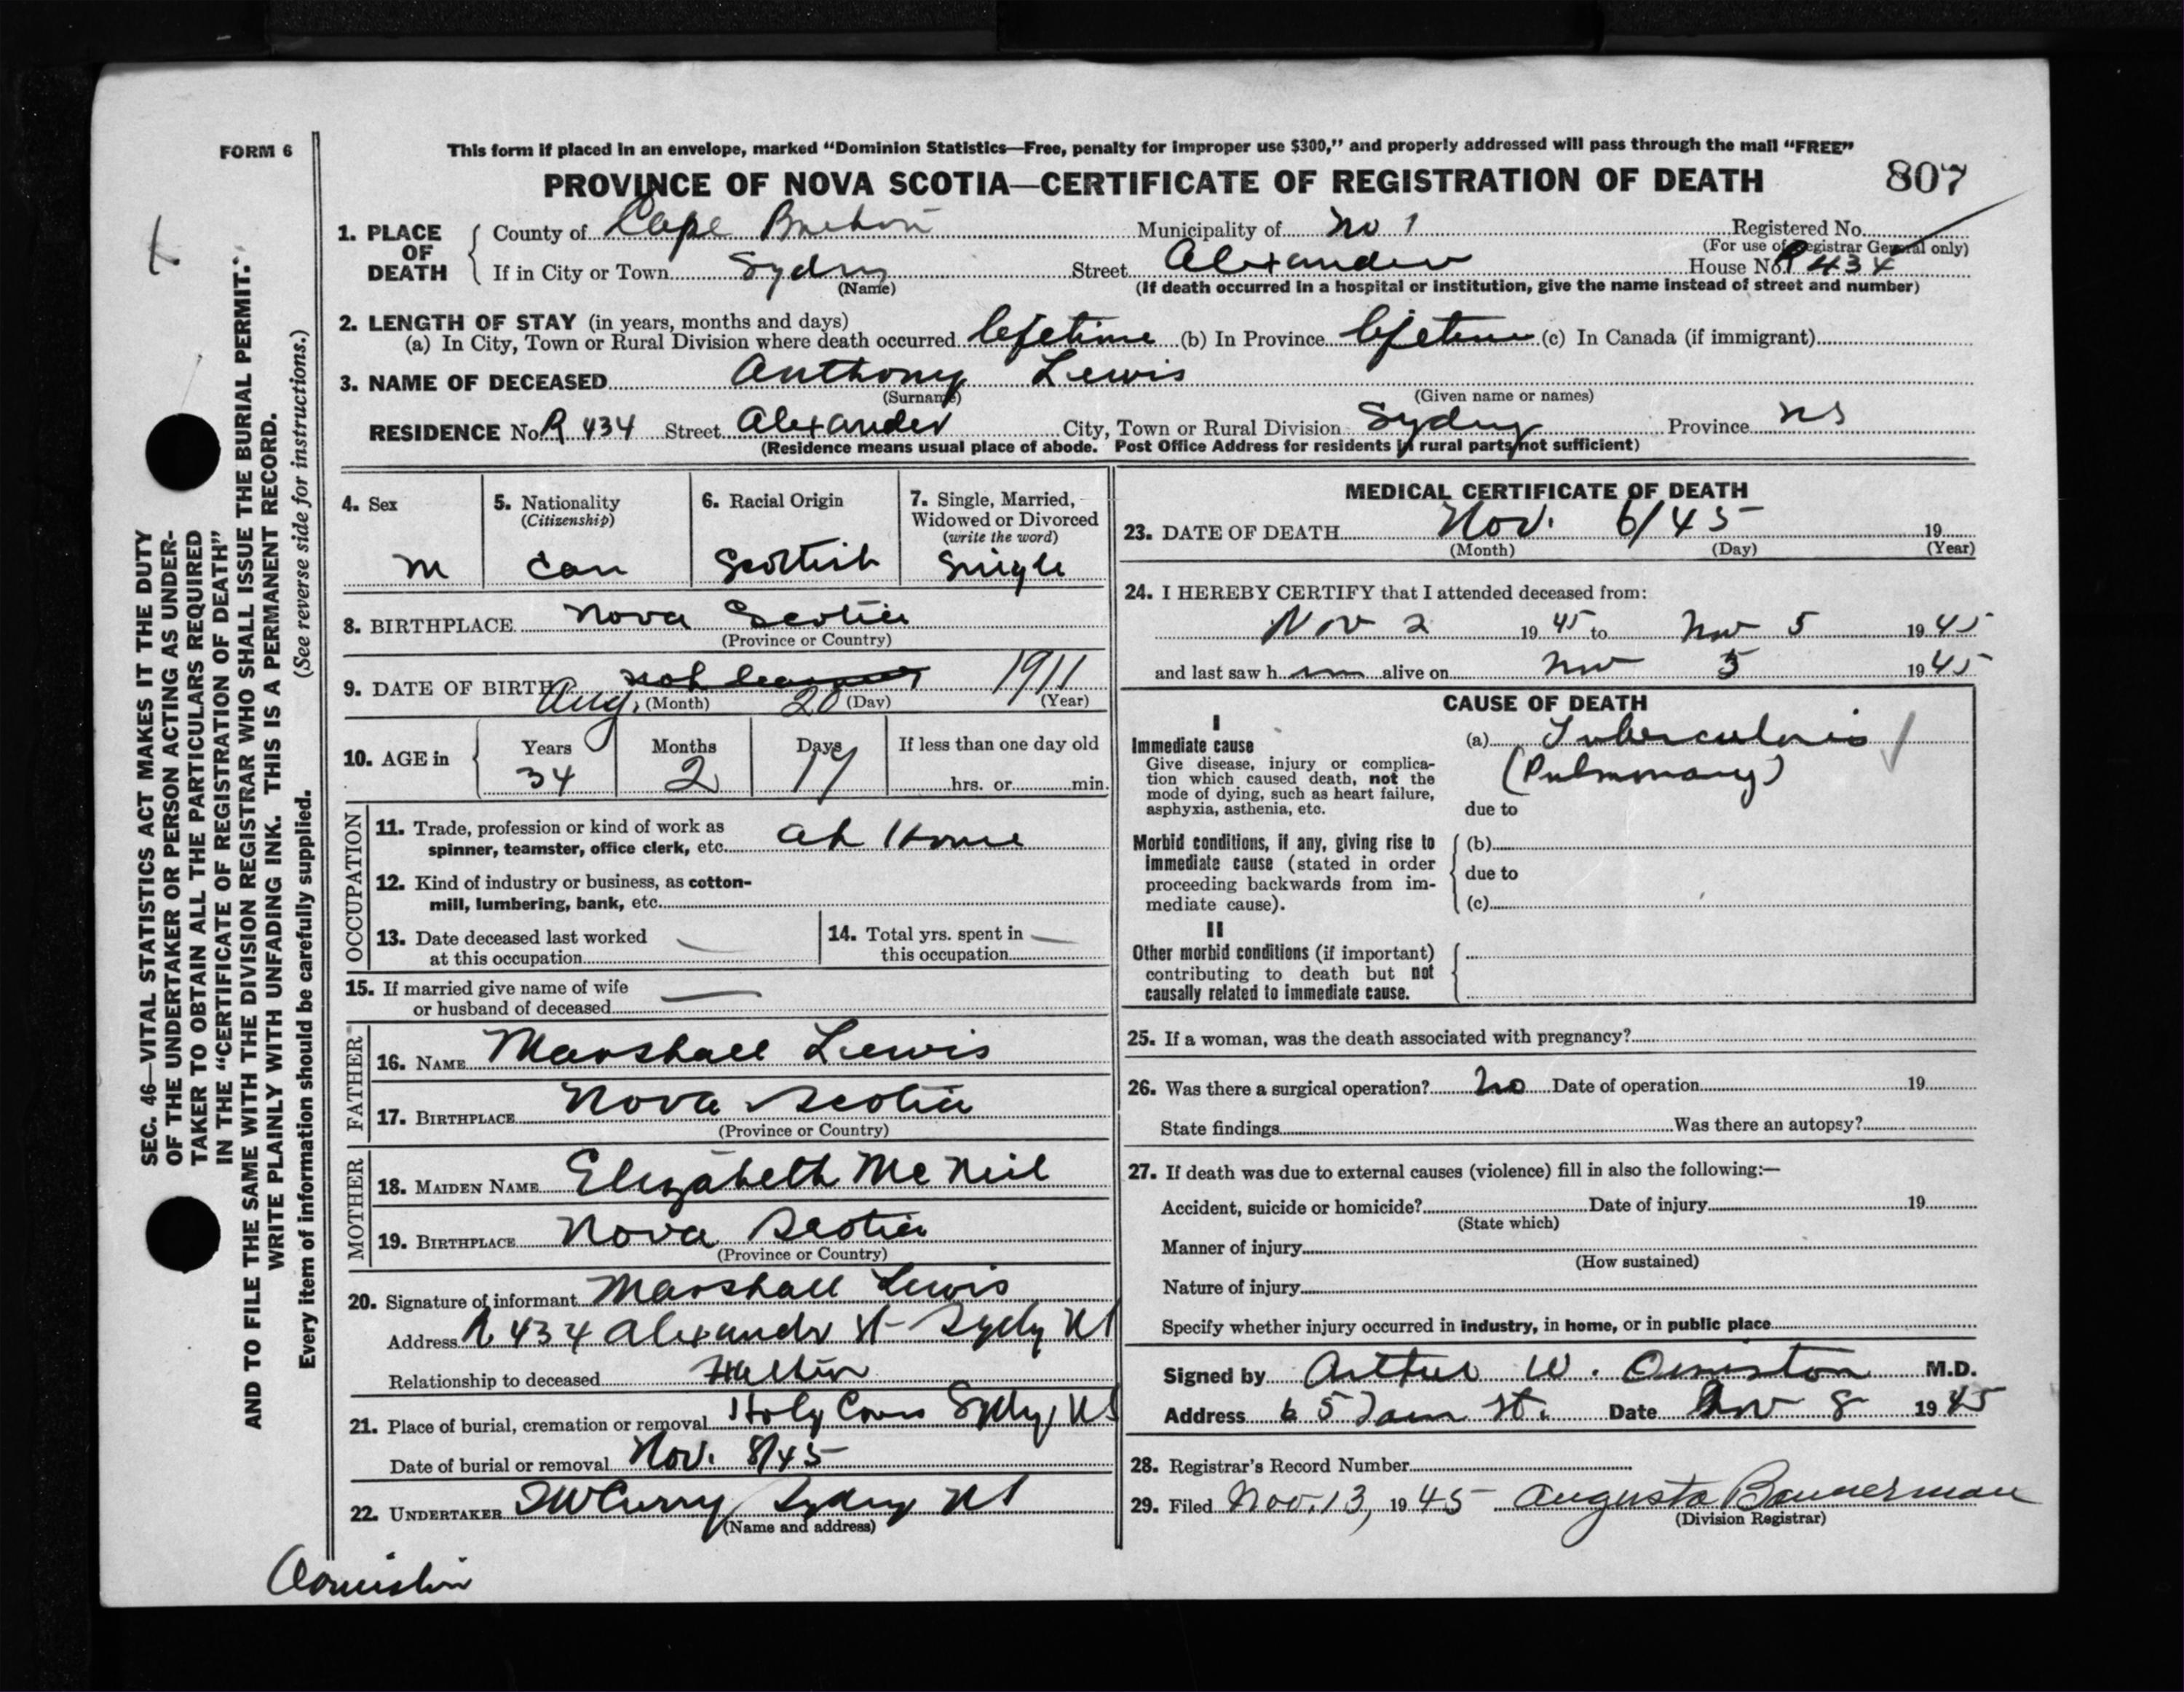 FORM 6
This form if placed in an envelope, marked “Dominion Statistics—Free, penalty for improper use $300,” and properly addressed will pass through the mail “FREE”
PROVINCE OF NOVA SCOTIA—CERTIFICATE OF REGISTRATION OF DEATH 807
1. PLACE OF DEATH
County of Cape Breton Municipality of No 1 Registered No.
(For use of Registrar General only)
If in City or Town Sydney Street Alexander House No. R 434
(Name) (If death occurred in a hospital or institution, give the name instead of street and number)
2. LENGTH OF STAY (in years, months and days)
(a) In City, Town or Rural Division where death occurred lifetime (b) In Province lifetime (c) In Canada (if immigrant)
3. NAME OF DECEASED Anthony Lewis
(Surname) (Given name or names)
RESIDENCE No. R 434 Street Alexander City, Town or Rural Division Sydney Province NS
(Residence means usual place of abode. Post Office Address for residents in rural parts not sufficient)
4. Sex
M
5. Nationality
(Citizenship)
Can
6. Racial Origin
Scottish
7. Single, Married,
Widowed or Divorced
(write the word)
Single
8. BIRTHPLACE Nova Scotia
(Province or Country)
9. DATE OF BIRTH Aug. 20 1911
(Month) (Day) (Year)
10. AGE in
Years Months Days If less than one day old
34 2 17 hrs. or min.
OCCUPATION
11. Trade, profession or kind of work as
spinner, teamster, office clerk, etc. at Home
12. Kind of industry or business, as cotton-
mill, lumbering, bank, etc.
13. Date deceased last worked
at this occupation —
14. Total yrs. spent in
this occupation —
15. If married give name of wife
or husband of deceased —
FATHER
16. NAME Marshall Lewis
17. BIRTHPLACE Nova Scotia
(Province or Country)
MOTHER
18. MAIDEN NAME Elizabeth McNeil
19. BIRTHPLACE Nova Scotia
(Province or Country)
20. Signature of informant Marshall Lewis
Address R 434 Alexander St Sydney NS
Relationship to deceased Father
21. Place of burial, cremation or removal Holy Cross Sydney NS
Date of burial or removal Nov. 8/45
22. UNDERTAKER Curry Sydney NS
(Name and address)
MEDICAL CERTIFICATE OF DEATH
23. DATE OF DEATH Nov. 6/45 19
(Month) (Day) (Year)
24. I HEREBY CERTIFY that I attended deceased from:
Nov 2 19 45 to Nov 5 19 45
and last saw h im alive on Nov 5 19 45
CAUSE OF DEATH
I
Immediate cause
Give disease, injury or complica-
tion which caused death, not the
mode of dying, such as heart failure,
asphyxia, asthenia, etc.
(a) Tuberculosis
(Pulmonary)
due to
Morbid conditions, if any, giving rise to
immediate cause (stated in order
proceeding backwards from im-
mediate cause).
(b)
due to
(c)
II
Other morbid conditions (if important)
contributing to death but not
causally related to immediate cause.
25. If a woman, was the death associated with pregnancy?
26. Was there a surgical operation? no Date of operation 19
State findings Was there an autopsy?
27. If death was due to external causes (violence) fill in also the following:—
Accident, suicide or homicide? Date of injury 19
(State which)
Manner of injury
(How sustained)
Nature of injury
Specify whether injury occurred in industry, in home, or in public place
Signed by Arthur W. Ormiston M.D.
Address 65 St. Date Nov 8 19 45
28. Registrar's Record Number
29. Filed Nov. 13, 19 45 Augusta Bannerman
(Division Registrar)
Ormiston
SEC. 46—VITAL STATISTICS ACT MAKES IT THE DUTY
OF THE UNDERTAKER OR PERSON ACTING AS UNDER-
TAKER TO OBTAIN ALL THE PARTICULARS REQUIRED
IN THE “CERTIFICATE OF REGISTRATION OF DEATH”
AND TO FILE THE SAME WITH THE DIVISION REGISTRAR WHO SHALL ISSUE THE BURIAL PERMIT.
WRITE PLAINLY WITH UNFADING INK. THIS IS A PERMANENT RECORD.
Every item of information should be carefully supplied. (See reverse side for instructions.)